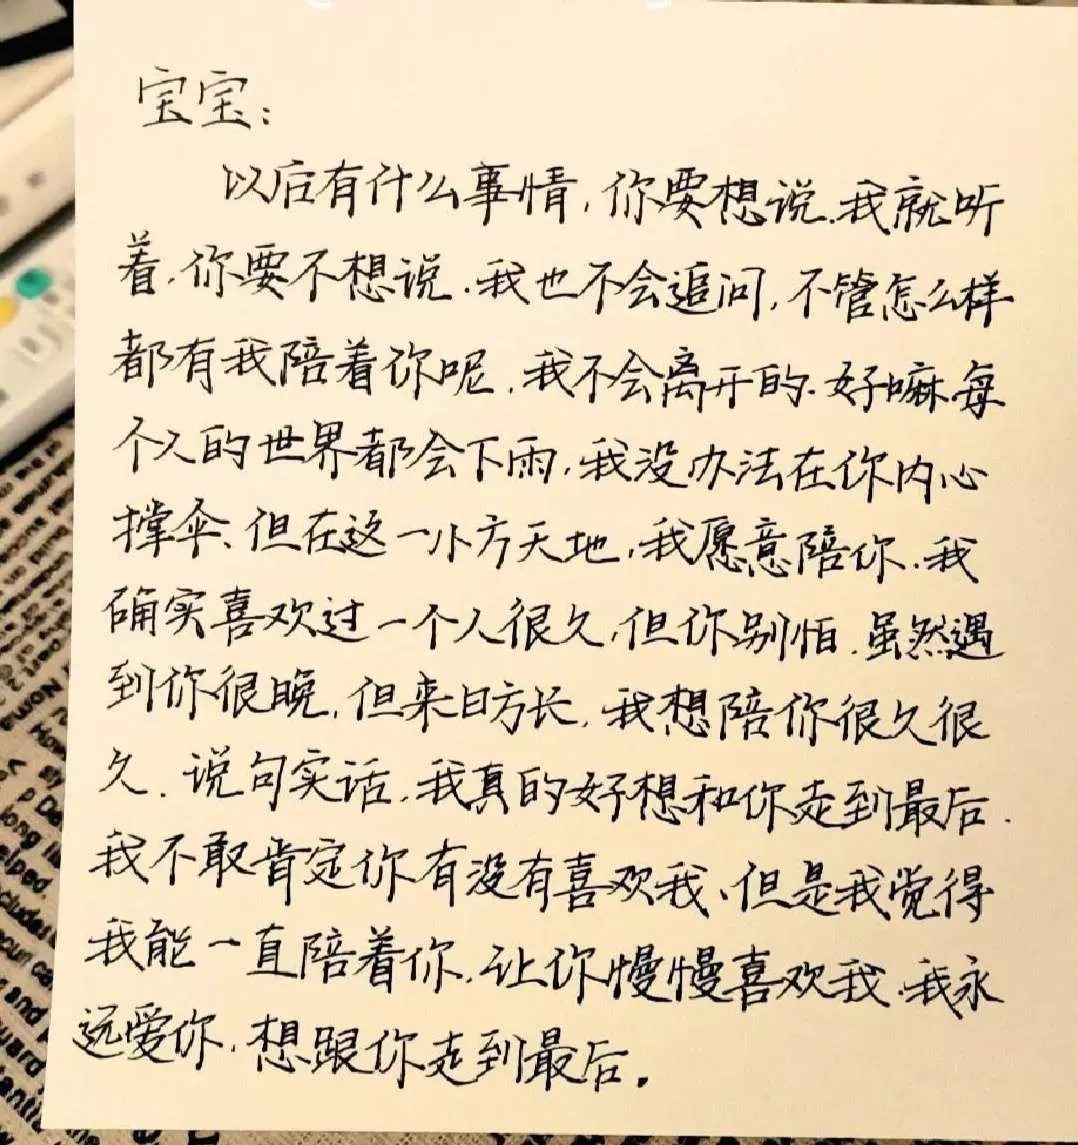 宝宝:
以后有什么事情,你要想说.我就听
着.你要不想说.我也不会追问,不管怎么样
都有我陪着你呢.我不会离开的.好嘛.每
个人的世界都会下雨,我没办法在你内心
撑伞、但在这一小方天地,我愿意陪你.我
确实喜欢过一个人很久,但你别怕.虽然遇
到你很晚,但来日方长,我想陪你很久很
久.说句实话,我真的好想和你走到最后.
我不敢肯定你有没有喜欢我、但是我觉得
我能一直陪着你.让你慢慢喜欢我.我永
远爱你,想跟你走到最后.